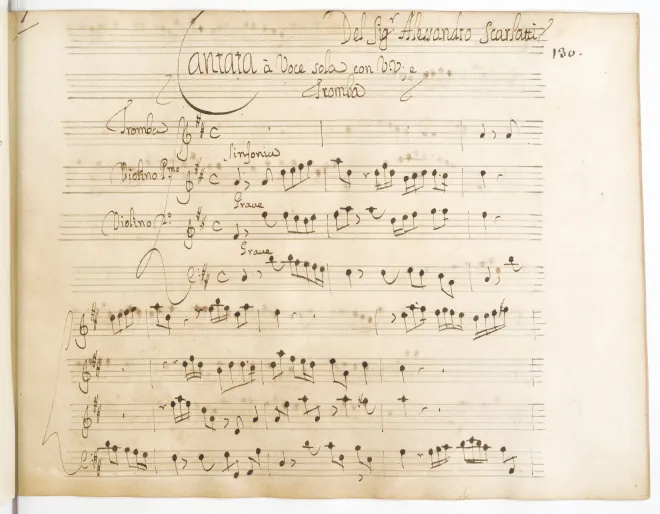 Del Sig.r Alessandro Scarlatti
130.
Cantata à Voce sola con V.V.i e
Tromba
Tromba
Sinfonia
Violino P.mo
Grave
Violino 2.o
Grave